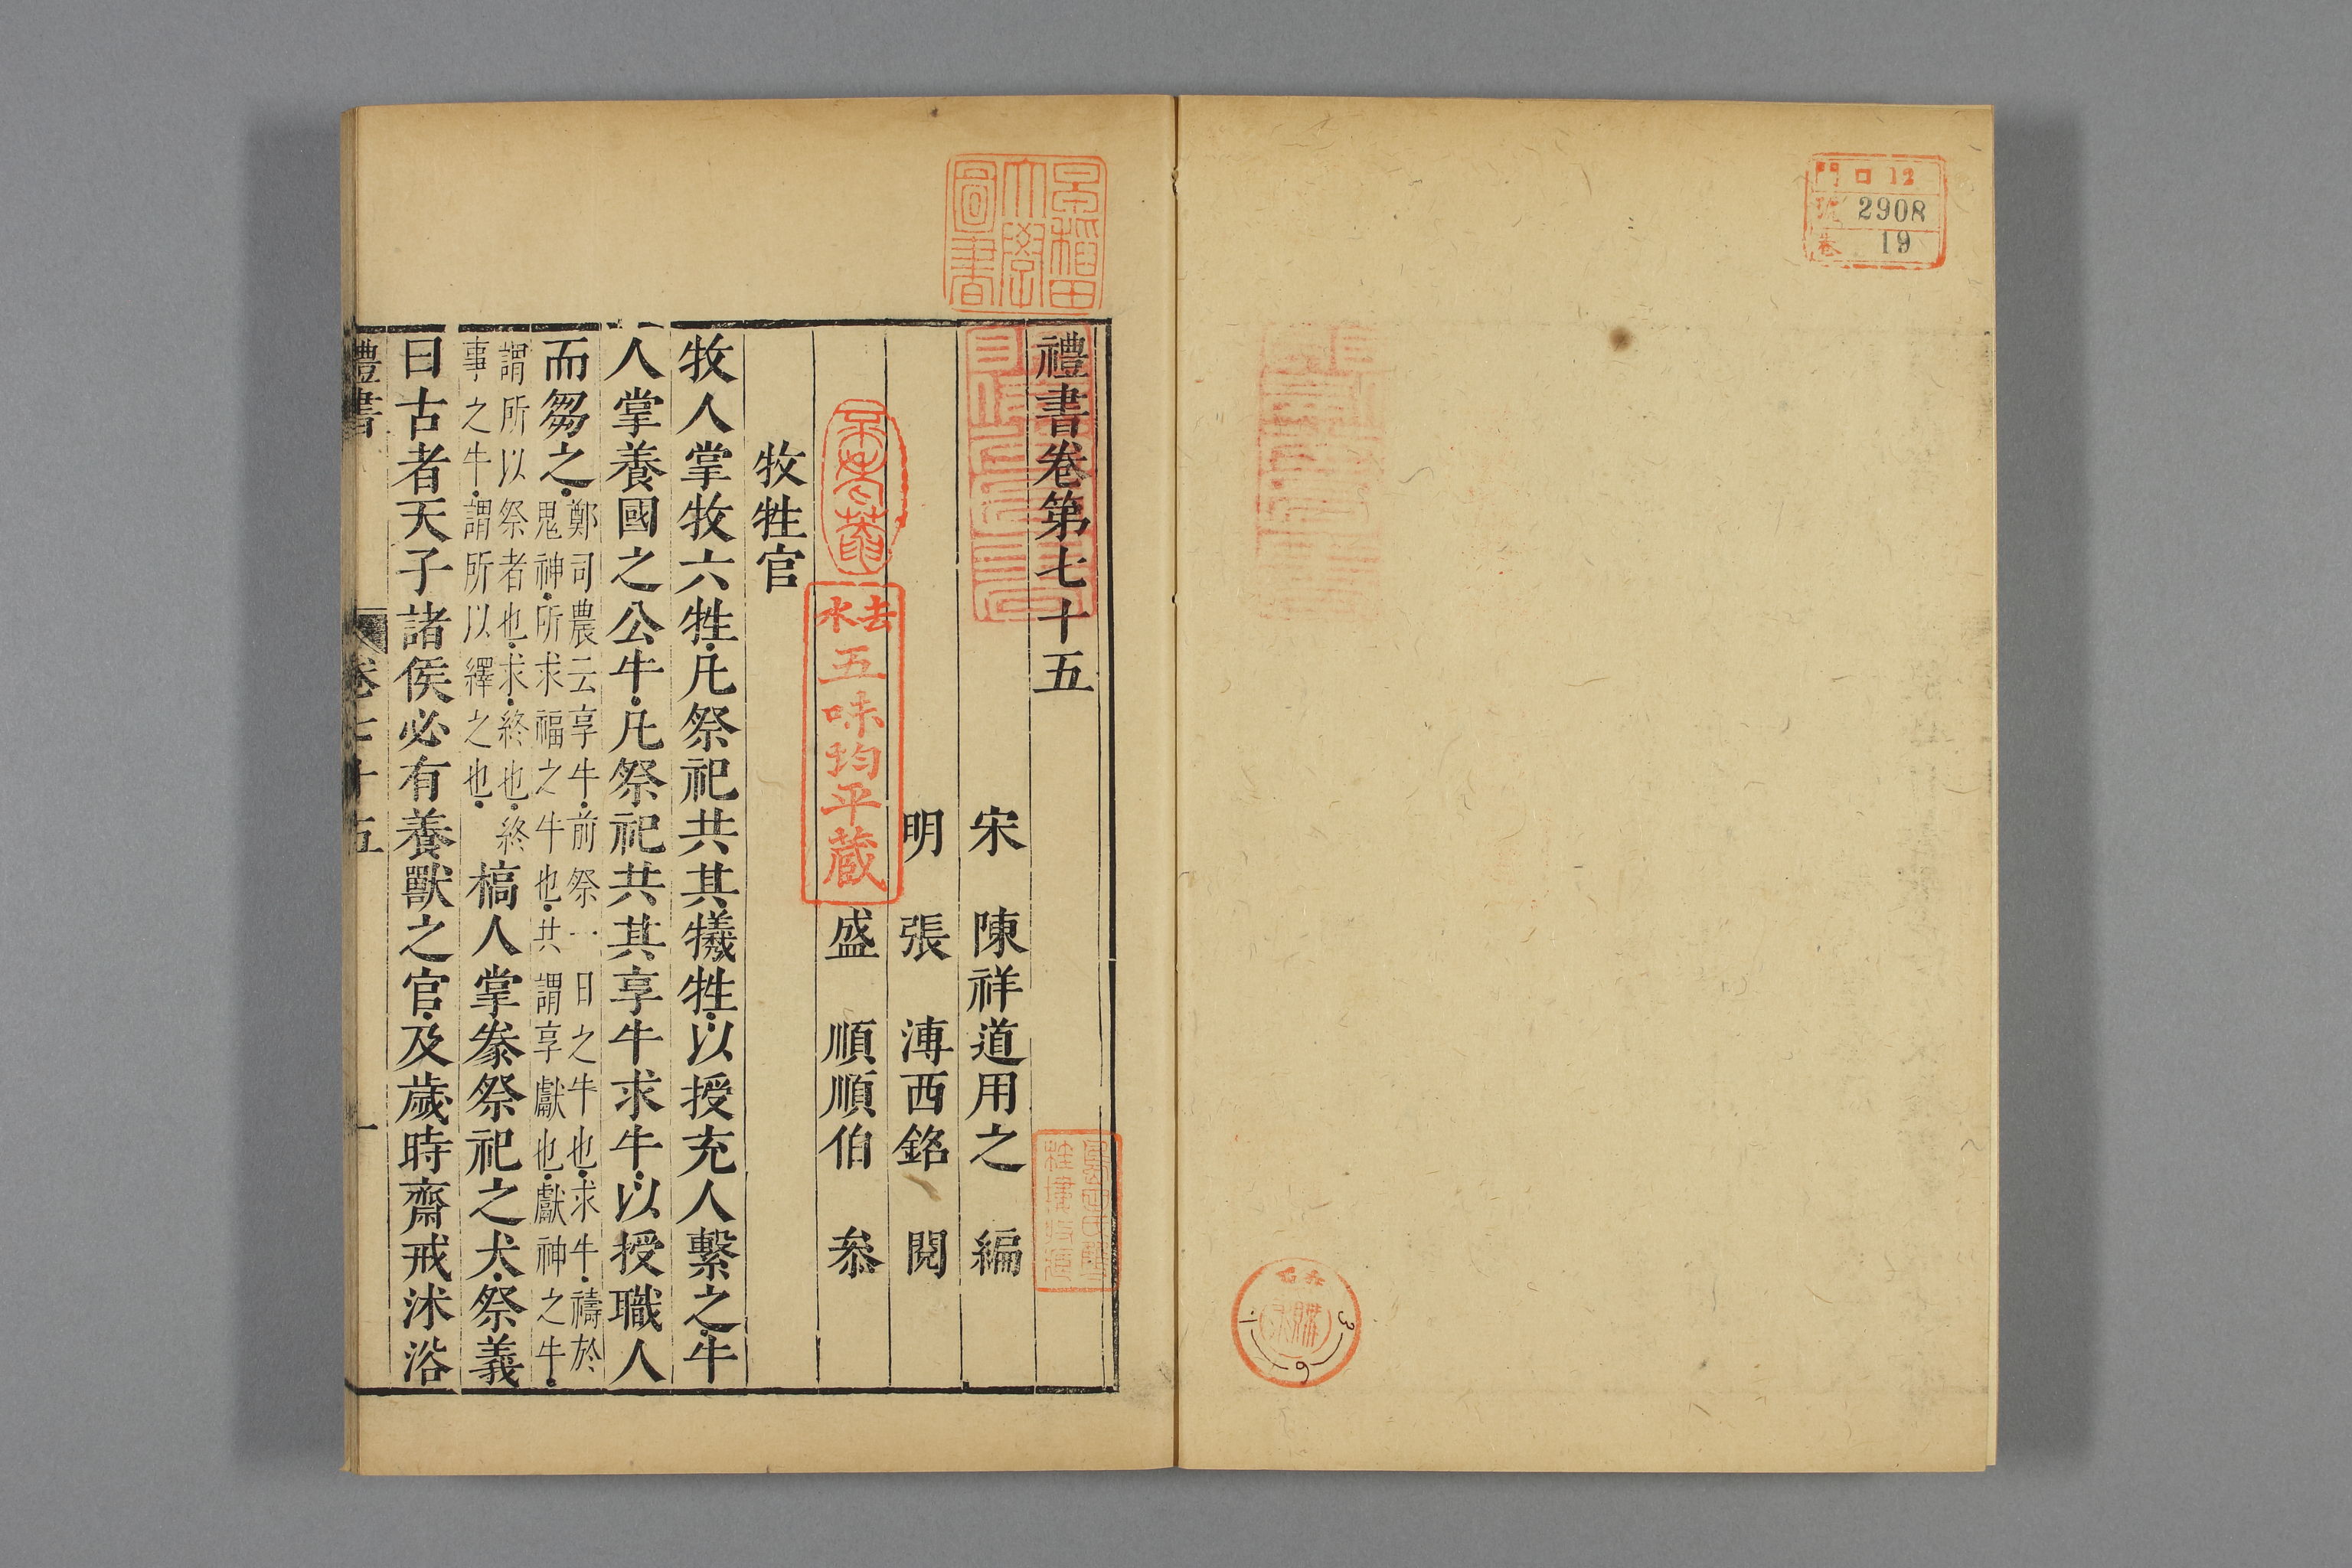 門 ロ 12
號 2908
卷 19
早稲田大學圖書
禮書卷第七十五
宋 陳祥道用之 編
明 張 溥西銘 閱
盛 順順伯 叅
去水
五味均平蔵
牧牲官
牧人掌牧六牲凡祭祀共其犧牲以授充人繫之牛
人掌養國之公牛凡祭祀共其享牛求牛以授職人
而芻之
鄭司農云享牛前祭一日之牛也求牛禱於
鬼神所求福之牛也共謂享獻也獻神之牛
謂所以祭者也求終也終
事之牛謂所以繹之也
槁人掌豢祭祀之犬祭義
曰古者天子諸侯必有養獸之官及歲時齋戒沐浴
禮書 卷七十五 一